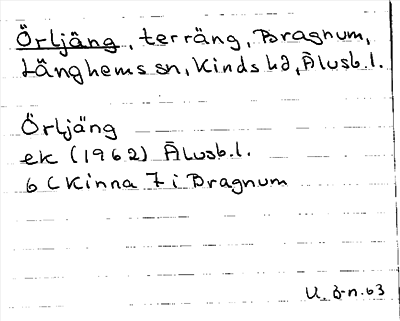 Örljäng, terräng, Bragnum,
Länghems sn, Kinds hd, Älvsb.l.
Örljäng
ek (1962) Älvsb.l.
6 C Kinna 7 i Bragnum
U. ö-n. 63